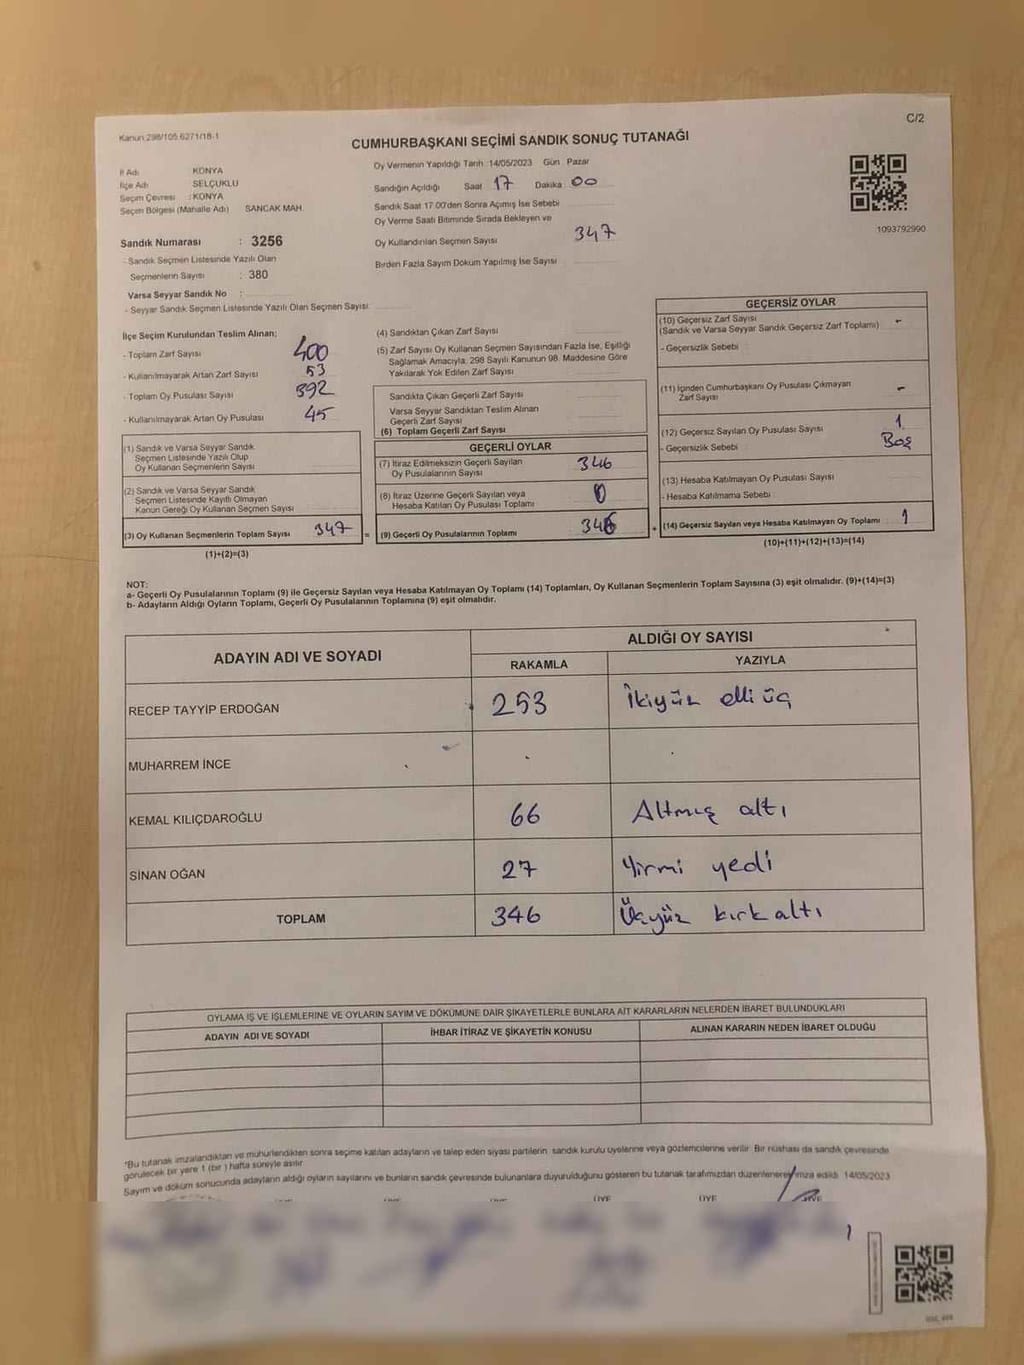 Kanun 298/105 6271/18-1
C/2
CUMHURBAŞKANI SEÇİMİ SANDIK SONUÇ TUTANAĞI
İl Adı KONYA
İlçe Adı SELÇUKLU
Seçim Çevresi : KONYA
Seçim Bölgesi (Mahalle Adı) SANCAK MAH.
Sandık Numarası : 3256
- Sandık Seçmen Listesinde Yazılı Olan
Seçmenlerin Sayısı : 380
Varsa Seyyar Sandık No :
- Seyyar Sandık Seçmen Listesinde Yazılı Olan Seçmen Sayısı
Oy Vermenin Yapıldığı Tarih :14/05/2023 Gün Pazar
Sandığın Açıldığı Saat 17 Dakika 00
Sandık Saat 17.00'den Sonra Açımış İse Sebebi
Oy Verme Saati Bitiminde Sırada Bekleyen ve
Oy Kullandırılan Seçmen Sayısı 347
Birden Fazla Sayım Döküm Yapılmış İse Sayısı
1093792990
İlçe Seçim Kurulundan Teslim Alınan;
- Toplam Zarf Sayısı 400
- Kullanılmayarak Artan Zarf Sayısı 53
- Toplam Oy Pusulası Sayısı 392
- Kullanılmayarak Artan Oy Pusulası 45
(1) Sandık ve Varsa Seyyar Sandık
Seçmen Listesinde Yazılı Olup
Oy Kullanan Seçmenlerin Sayısı
(2) Sandık ve Varsa Seyyar Sandık
Seçmen Listesinde Kayıtlı Olmayan
Kanun Gereği Oy Kullanan Seçmen Sayısı
(3) Oy Kullanan Seçmenlerin Toplam Sayısı 347 =
(1)+(2)=(3)
(4) Sandıktan Çıkan Zarf Sayısı
(5) Zarf Sayısı Oy Kullanan Seçmen Sayısından Fazla İse, Eşitliği
Sağlamak Amacıyla, 298 Sayılı Kanunun 98. Maddesine Göre
Yakılarak Yok Edilen Zarf Sayısı
Sandıkta Çıkan Geçerli Zarf Sayısı
Varsa Seyyar Sandıktan Teslim Alınan
Geçerli Zarf Sayısı
(6) Toplam Geçerli Zarf Sayısı
GEÇERLİ OYLAR
(7) İtiraz Edilmeksizin Geçerli Sayılan
Oy Pusulalarının Sayısı 346
(8) İtiraz Üzerine Geçerli Sayılan veya
Hesaba Katılan Oy Pusulası Toplamı 0
(9) Geçerli Oy Pusulalarının Toplamı 346 +
GEÇERSİZ OYLAR
(10) Geçersiz Zarf Sayısı -
(Sandık ve Varsa Seyyar Sandık Geçersiz Zarf Toplamı)
- Geçersizlik Sebebi
(11) İçinden Cumhurbaşkanı Oy Pusulası Çıkmayan -
Zarf Sayısı
(12) Geçersiz Sayılan Oy Pusulası Sayısı 1
- Geçersizlik Sebebi Boş
(13) Hesaba Katılmayan Oy Pusulası Sayısı
- Hesaba Katılmama Sebebi
(14) Geçersiz Sayılan veya Hesaba Katılmayan Oy Toplamı 1
(10)+(11)+(12)+(13)=(14)
NOT:
a- Geçerli Oy Pusulalarının Toplamı (9) ile Geçersiz Sayılan veya Hesaba Katılmayan Oy Toplamı (14) Toplamları, Oy Kullanan Seçmenlerin Toplam Sayısına (3) eşit olmalıdır. (9)+(14)=(3)
b- Adayların Aldığı Oyların Toplamı, Geçerli Oy Pusulalarının Toplamına (9) eşit olmalıdır.
ADAYIN ADI VE SOYADI ALDIĞI OY SAYISI
RAKAMLA YAZIYLA
RECEP TAYYİP ERDOĞAN 253 İkiyüz elli üç
MUHARREM İNCE
KEMAL KILIÇDAROĞLU 66 Altmış altı
SİNAN OĞAN 27 Yirmi yedi
TOPLAM 346 Üçyüz kırk altı
OYLAMA İŞ VE İŞLEMLERİNE VE OYLARIN SAYIM VE DÖKÜMÜNE DAİR ŞİKAYETLERLE BUNLARA AİT KARARLARIN NELERDEN İBARET BULUNDUKLARI
ADAYIN ADI VE SOYADI İHBAR İTİRAZ VE ŞİKAYETİN KONUSU ALINAN KARARIN NEDEN İBARET OLDUĞU
*Bu tutanak imzalandıktan ve mühürlendikten sonra seçime katılan adayların ve talep eden siyasi partilerin sandık kurulu üyelerine veya gözlemcilerine verilir. Bir nüshası da sandık çevresinde
görülecek bir yere 1 (bir ) hafta süreyle asılır
Sayım ve döküm sonucunda adayların aldığı oyların sayılarını ve bunların sandık çevresinde bulunanlara duyurulduğunu gösteren bu tutanak tarafımızdan düzenlenerek imza edildi 14/05/2023
ÜYE ÜYE ÜYE